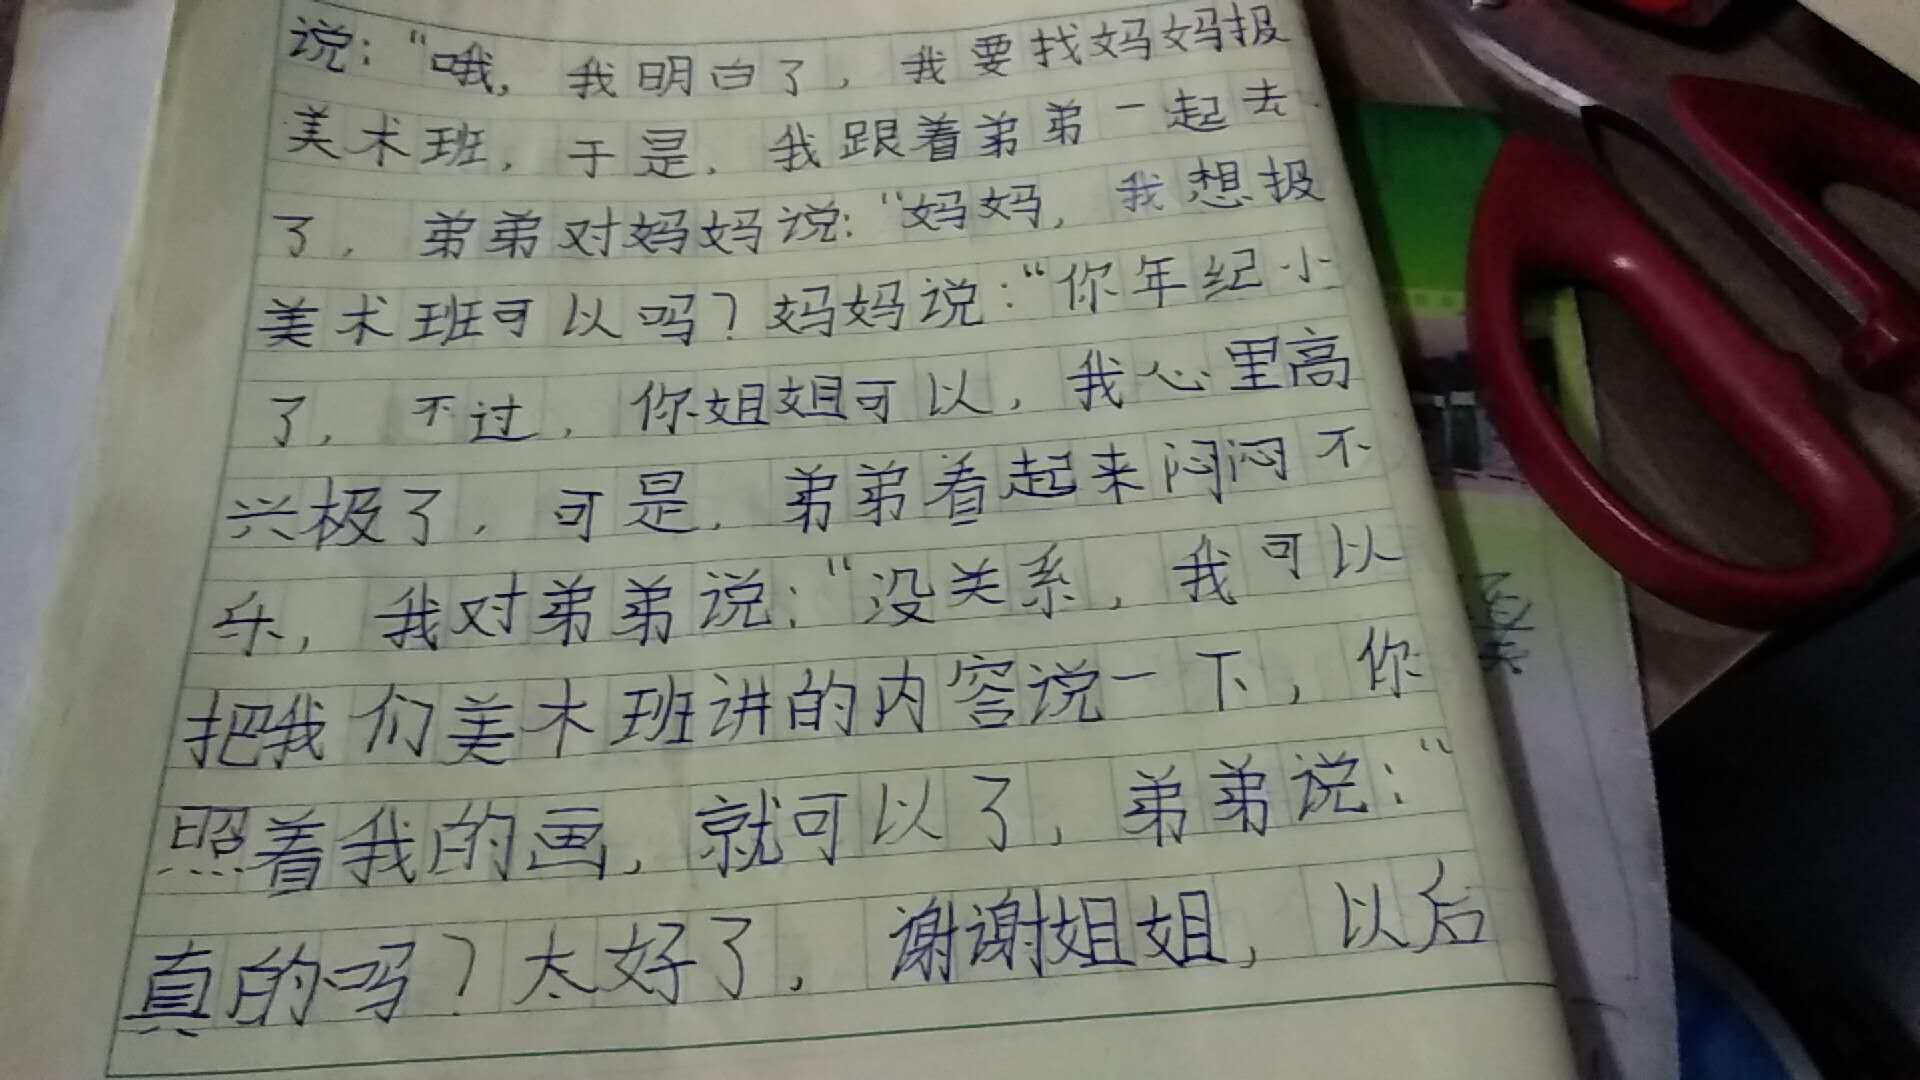 说：“哦，我明白了，我要找妈妈报
美术班，于是，我跟着弟弟一起去
了，弟弟对妈妈说：“妈妈，我想报
美术班可以吗？妈妈说：“你年纪小
了，不过，你姐姐可以，我心里高
兴极了，可是，弟弟看起来闷闷不
乐，我对弟弟说：“没关系，我可以
把我们美木班讲的内容说一下，你
照着我的画，就可以了，弟弟说：“
真的吗？太好了，谢谢姐姐，以后